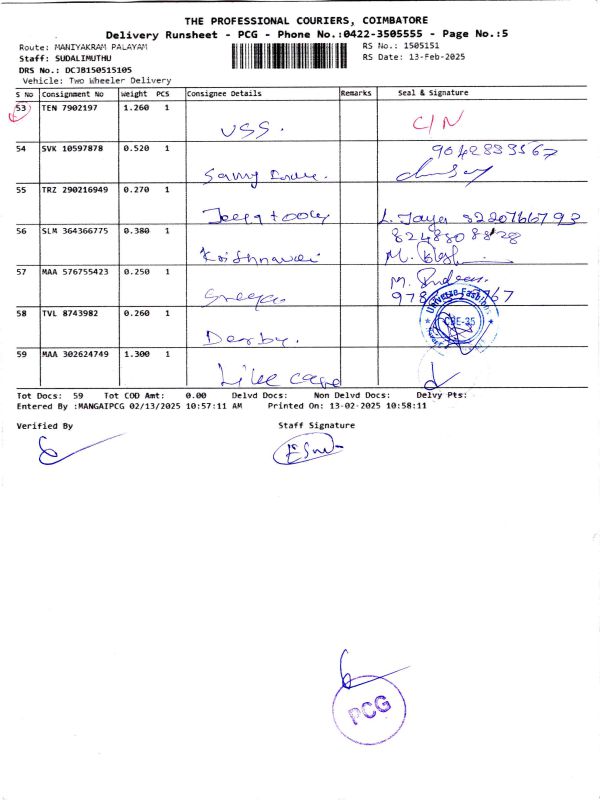 THE PROFESSIONAL COURIERS, COIMBATORE
Delivery Runsheet - PCG - Phone No.:0422-3505555 - Page No.:5
Route: MANIYAKRAM PALAYAM
RS No.: 1505151
Staff: SUDALIMUTHU
RS Date: 13-Feb-2025
DRS No.: DCJB150515105
Vehicle: Two Wheeler Delivery
S No Consignment No Weight PCS Consignee Details Remarks Seal & Signature
53 TEN 7902197 1.260 1
VSS. C/N
54 SVK 10597878 0.520 1
9042833567
55 TRZ 290216949 0.270 1
L. Jaya 8220766793
56 SLM 364366775 0.380 1
8248808828
Krishnaveni M.
57 MAA 576755423 0.250 1
M.
58 TVL 8743982 0.260 1
Universe Fashions
CBE-35
Derby.
59 MAA 302624749 1.300 1
Like care
Tot Docs: 59 Tot COD Amt: 0.00 Delvd Docs: Non Delvd Docs: Delvy Pts:
Entered By :MANGAIPCG 02/13/2025 10:57:11 AM Printed On: 13-02-2025 10:58:11
Verified By Staff Signature
PCG